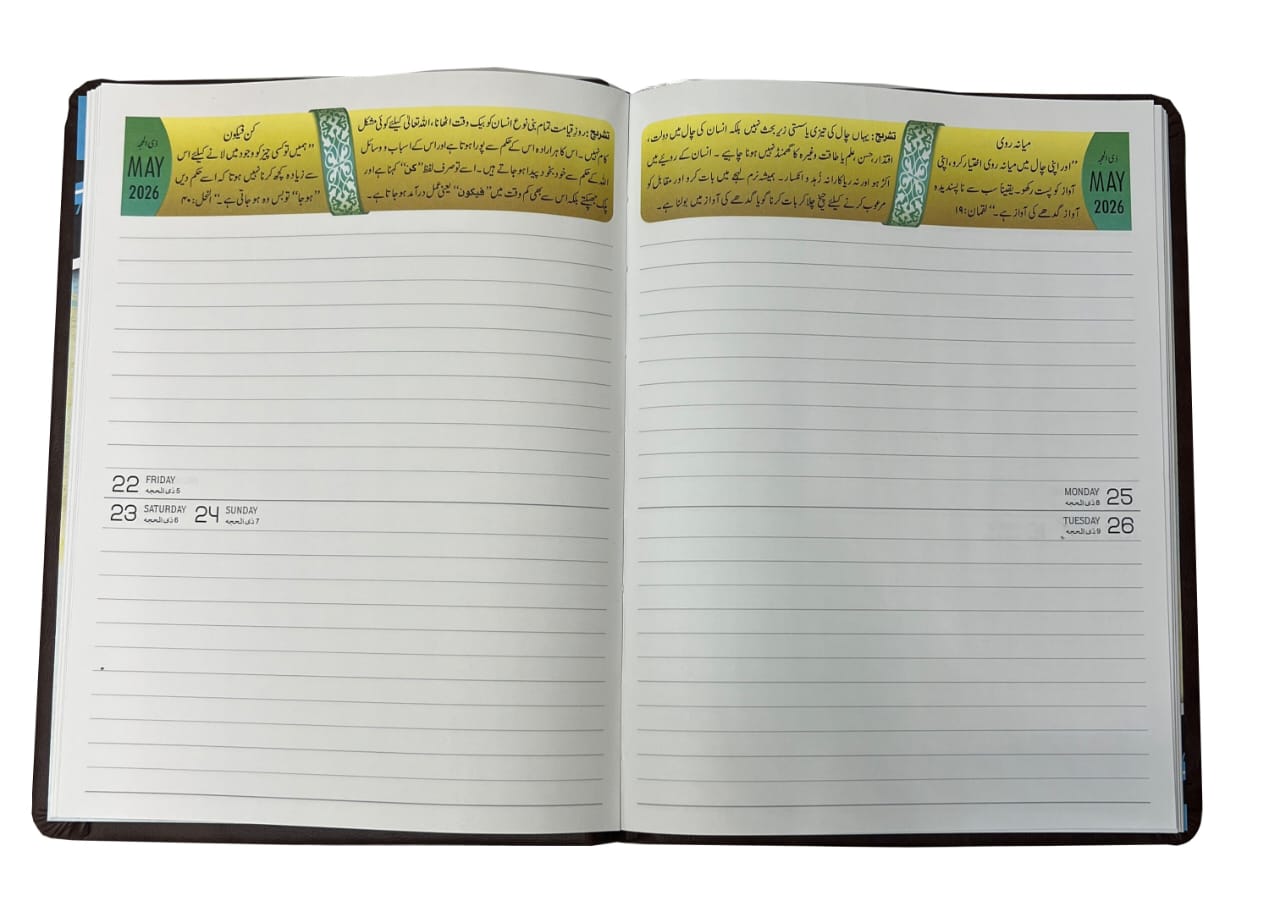 ذی الحجہ
MAY
2026
کن فیکون
”ہمیں تو کسی چیز کو وجود میں لانے کیلئے اس
سے زیادہ کچھ کرنا نہیں ہوتا کہ اسے حکم دیں
”ہوجا“ تو بس وہ ہو جاتی ہے۔“ النحل:۴۰
تشریح: روزِ قیامت تمام بنی نوع انسان کو بیک وقت اٹھانا، اللہ تعالیٰ کیلئے کوئی مشکل
کام نہیں۔ اس کا ہر ارادہ اس کے حکم سے پورا ہوتا ہے اور اس کے اسباب و وسائل
اللہ کے حکم سے خود بخود پیدا ہو جاتے ہیں۔ اسے تو صرف لفظ ”کن“ کہنا ہے اور
پلک جھپکتے بلکہ اس سے بھی کم وقت میں ”فیکون“ یعنی عمل درآمد ہو جاتا ہے۔
22 FRIDAY
5 ذی الحجه
23 SATURDAY 24 SUNDAY
6 ذی الحجه 7 ذی الحجه
ذی الحجہ
MAY
2026
میانہ روی
”اور اپنی چال میں میانہ روی اختیار کرو، اپنی
آواز کو پست رکھو۔ یقیناً سب سے ناپسندیدہ
آواز گدھے کی آواز ہے۔“ لقمان:۱۹
تشریح: یہاں چال کی تیزی یا سستی زیر بحث نہیں بلکہ انسان کی چال میں دولت،
اقتدار، حسن، علم یا طاقت وغیرہ کا گھمنڈ نہیں ہونا چاہیے۔ انسان کے رویے میں
اکڑ ہو اور نہ ریاکارانہ زُہد و انکسار۔ ہمیشہ نرم لہجے میں بات کرو اور مقابل کو
مرعوب کرنے کیلئے چیخ چلا کر بات کرنا گویا گدھے کی آواز میں بولنا ہے۔
MONDAY 25
8 ذی الحجه
TUESDAY 26
9 ذی الحجه